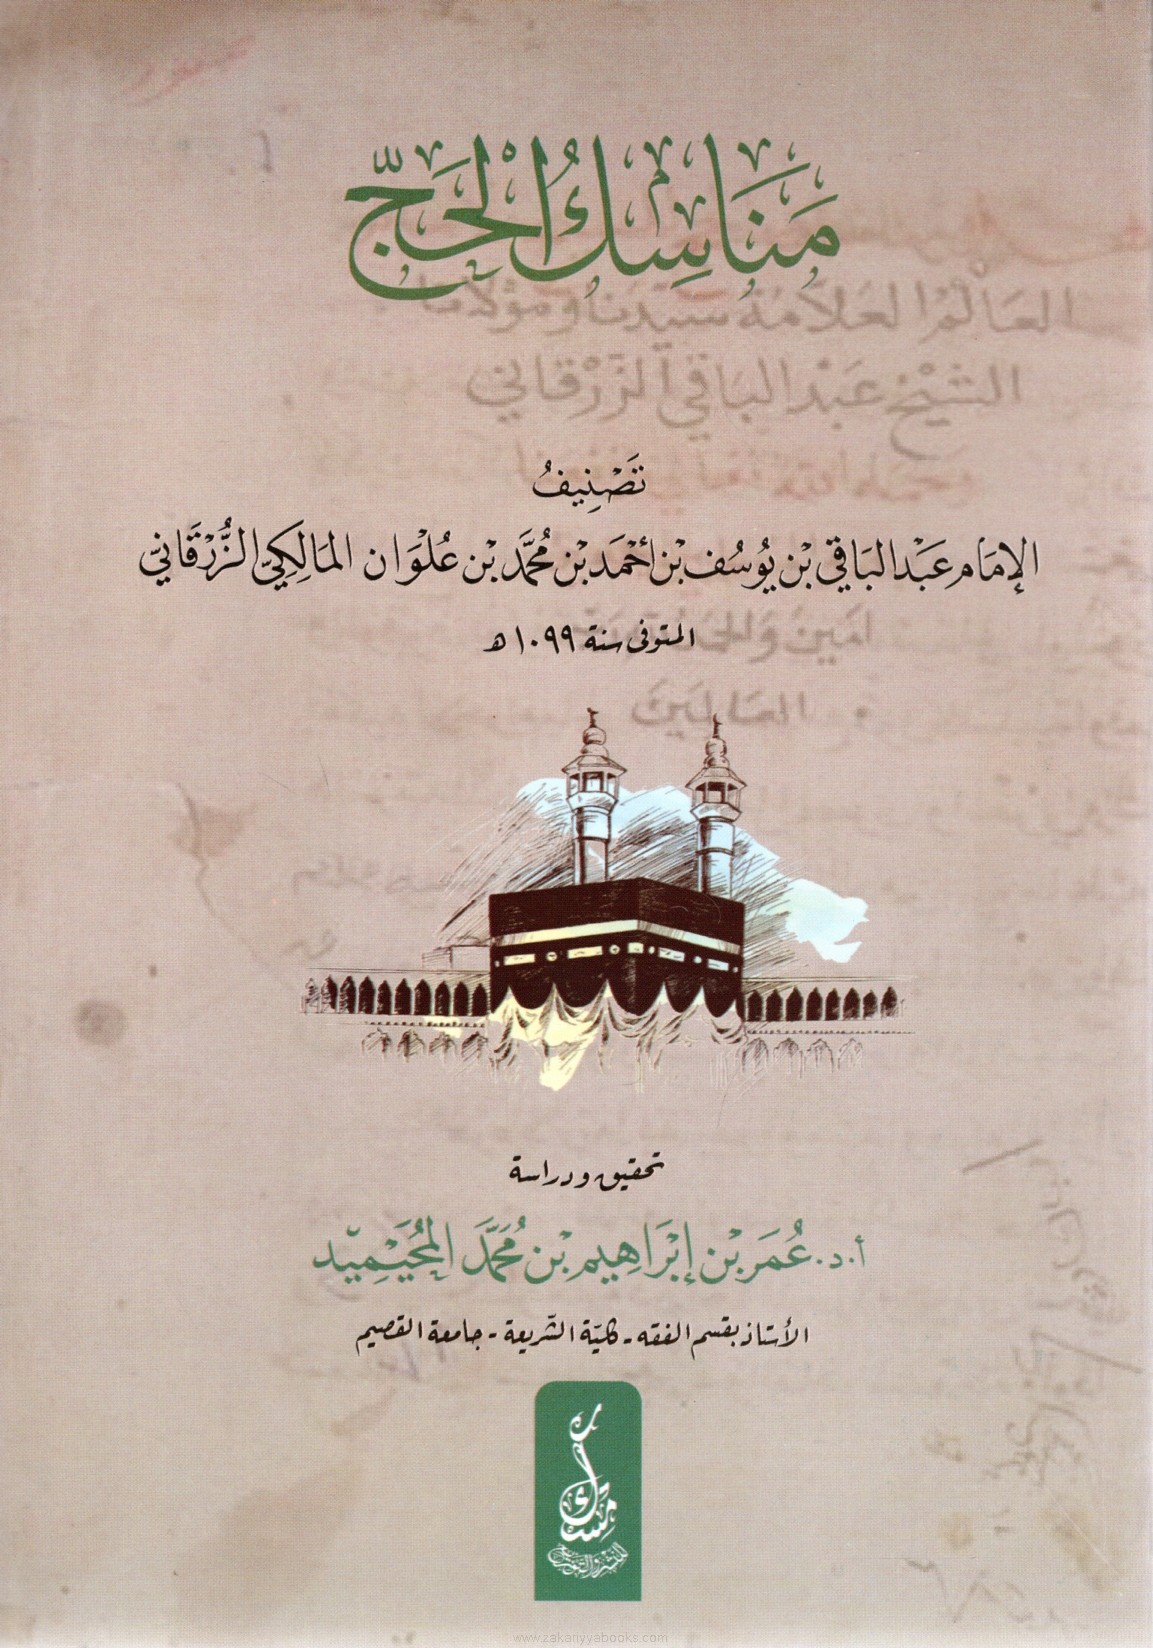 مَنَاسِكُ الْحَجّ
العَالِمُ العَلاَّمَة سَيِّدنَا وَمَوْلاَنَا
الشَّيْخ عَبْد البَاقِي الزَّرْقَانِي
رحمه الله تعالى
تَصْنِيفُ
الإِمَامِ عَبْدِ البَاقِي بْنِ يُوسُف بْنِ أَحْمَد بْنِ مُحَمَّد بْنِ عُلْوَان المَالِكِيّ الزُّرْقَانِيّ
امين وَالحَمْد
المتوفى سنة ١٠٩٩ هـ
العَالَمِينَ
تحقيق ودراسة
أ.د. عُمَر بْن إِبْرَاهِيم بْن مُحَمَّد المُحَيْمِيد
الأستاذ بقسم الفقه - كليّة الشّريعة - جامعة القصيم
للنشر والتوزيع
www.zakanyyabooks.com